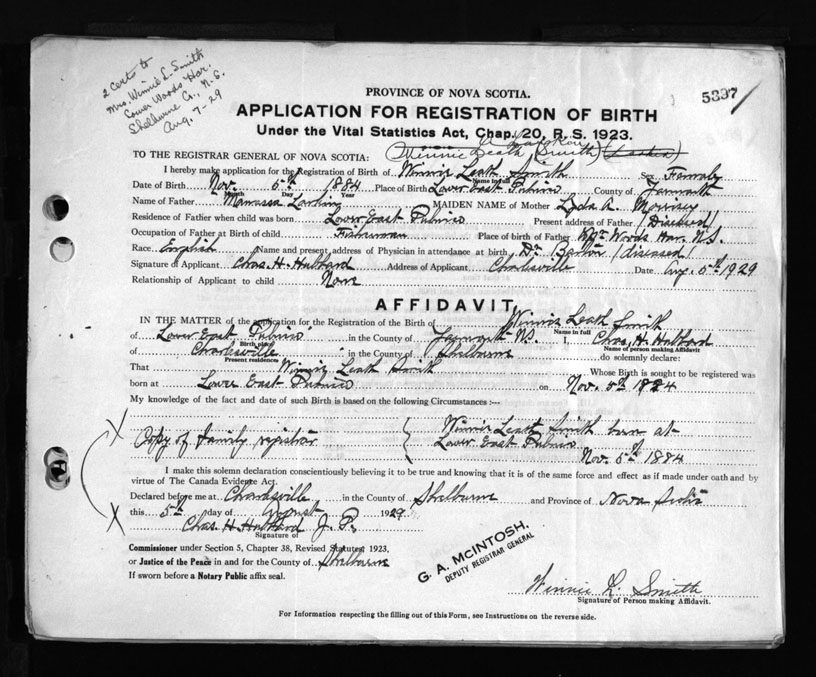 2 Certs to
Mrs. Winnie L. Smith
Lower Woods Har.
Shelburne Co., N.S.
Aug. 7-29
5397
PROVINCE OF NOVA SCOTIA.
APPLICATION FOR REGISTRATION OF BIRTH
Under the Vital Statistics Act, Chap. 20, R. S. 1923.
(Winnie Leath (Smith)
TO THE REGISTRAR GENERAL OF NOVA SCOTIA:
I hereby make application for the Registration of Birth of Winnie Leath Smith Sex Female
Name in full
Date of Birth Nov. 5th 1884 Place of Birth Lower East Pubnico County of Yarmouth
Month Day Year
Name of Father Manassa MAIDEN NAME of Mother Lyda A. Morrisey
Residence of Father when child was born Lower East Pubnico Present address of Father (Diseased)
Occupation of Father at Birth of child Fisherman Place of birth of Father Woods Har. N.S.
Race English Name and present address of Physician in attendance at birth Dr. (diseased)
Signature of Applicant Chas. H. Hubbard Address of Applicant Charlesville Date Aug. 5th 1929
Relationship of Applicant to child None
AFFIDAVIT
IN THE MATTER of the application for the Registration of the Birth of Winnie Leath Smith
Name in full
of Lower East Pubnico in the County of Yarmouth N.S. I, Chas. H. Hubbard
Birth place Name of person making Affidavit
of Charlesville in the County of Shelburne do solemnly declare:
Present residence
That Winnie Leath Smith Whose Birth is sought to be registered was
born at Lower East Pubnico on Nov. 5th 1884
My knowledge of the fact and date of such Birth is based on the following Circumstances :—
X Winnie Leath Smith born at
Copy of family registrar { Lower East Pubnico
Nov. 5th 1884
I make this solemn declaration conscientiously believing it to be true and knowing that it is of the same force and effect as if made under oath and by
virtue of The Canada Evidence Act.
Declared before me at Charlesville in the County of Shelburne and Province of Nova Scotia
this 5th day of August 1929
X Chas. H. Hubbard J. P.
Signature of
Commissioner under Section 5, Chapter 38, Revised Statutes, 1923,
or Justice of the Peace in and for the County of Shelburne
If sworn before a Notary Public affix seal.
G. A. McINTOSH.
DEPUTY REGISTRAR GENERAL
Winnie L. Smith
Signature of Person making Affidavit.
For Information respecting the filling out of this Form, see Instructions on the reverse side.